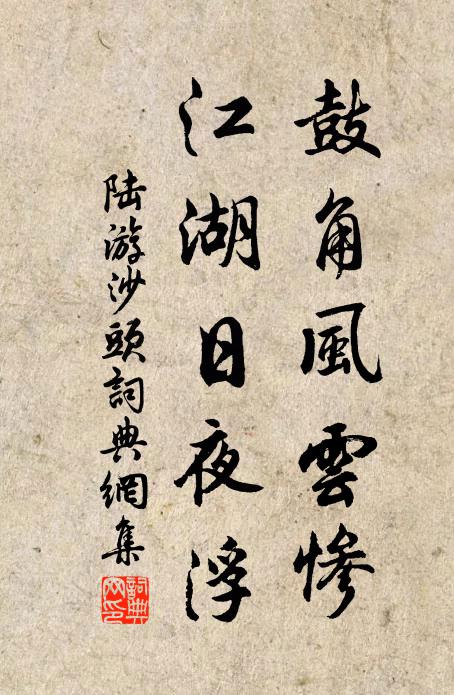 鼓角風雲慘
江湖日夜浮
陆游沙頭詞典網集
詞典網印